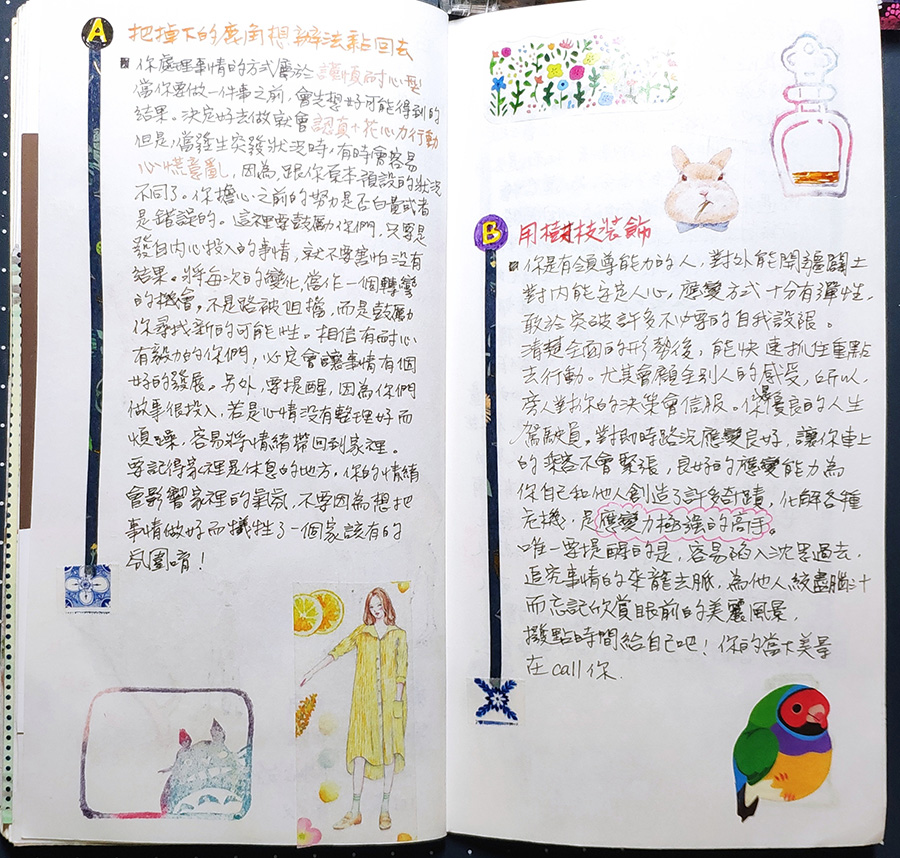 A 把掉下的鹿角想辦法黏回去
你處理事情的方式屬於謹慎耐心型
當你要做一件事之前，會先想好可能得到的
結果。決定好去做就會認真+花心力行動
但是，當發生突發狀況時，有時會容易
心慌意亂，因為，跟你原本預設的狀況
不同了。你擔心之前的努力是否白費或者
是錯誤的。這裡要鼓勵你們，只要是
發自內心投入的事情，就不要害怕沒有
結果。將每次的變化，當作一個轉彎
的機會。不是路被阻擋，而是鼓勵
你尋找新的可能性。相信有耐心
有毅力的你們，必定會讓事情有個
好的發展。另外，要提醒，因為你們
做事很投入，若是心情沒有整理好而
煩躁，容易將情緒帶回到家裡。
要記得家裡是休息的地方，你的情緒
會影響家裡的氣氛，不要因為想把
事情做好而犧牲了一個家該有的
氛圍唷！
B 用樹枝裝飾
你是有領導能力的人，對外能開疆闢土
對內能安定人心，應變方式十分有彈性，
敢於突破許多不必要的自我設限。
清楚全面的形勢後，能快速抓住重點
去行動。尤其會顧全別人的感受，所以，
旁人對你的決策會信服。你是優良的人生
駕駛員。對即時路況應變良好，讓你車上
的乘客不會緊張，良好的應變能力為
你自己和他人創造了許多奇蹟，化解各種
危機。是應變力極強的高手。
唯一要提醒的是，容易陷入沈思過去，
追究事情的來龍去脈，為他人絞盡腦汁
而忘記欣賞眼前的美麗風景，
撥點時間給自己吧！你的當下美景
在call你.